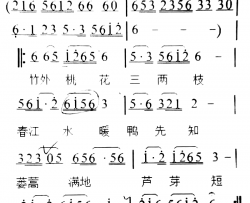 (216 5612 66 60 | 653 2356 33 30
6·123 5·3 56 | 6 - - -)
6 65 i265 6 | 5·6 i265 3 -
竹外 桃 花 三 两 枝
56i· 2 6i56 3 | 5·6 321 2 -
春江 水 暖 鸭 先 知
323 05 656 ·56 | i·2 i265 3 -
蒌蒿 满地 芦 芽 短